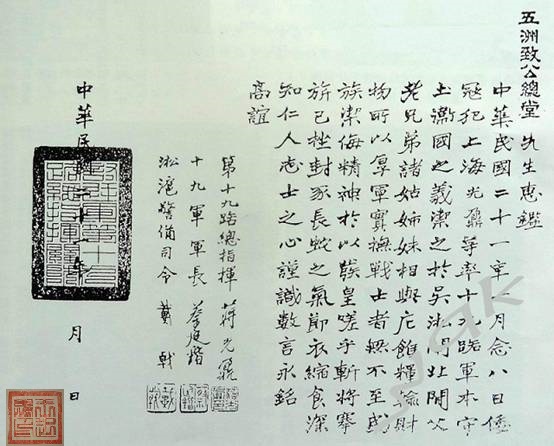 五洲致公總堂 先生惠鑑
中華民國二十一年一月念八日倭
寇犯上海光鼐等率十九路軍本守
土衞國之義禦之於吳淞閘北間父
老兄弟諸姑姊妹相與庀餽糧輸財
物所以厚軍實撫戰士者無不至民
族禦侮精神於以發皇嗟乎斬將搴
旂已挫封豕長蛇之氣節衣縮食深
知仁人志士之心謹識數言永銘
高誼
第十九路總指揮 蔣光鼐
十九軍軍長 蔡廷鍇
淞滬警備司令 戴戟
中華民國二十一年 月 日